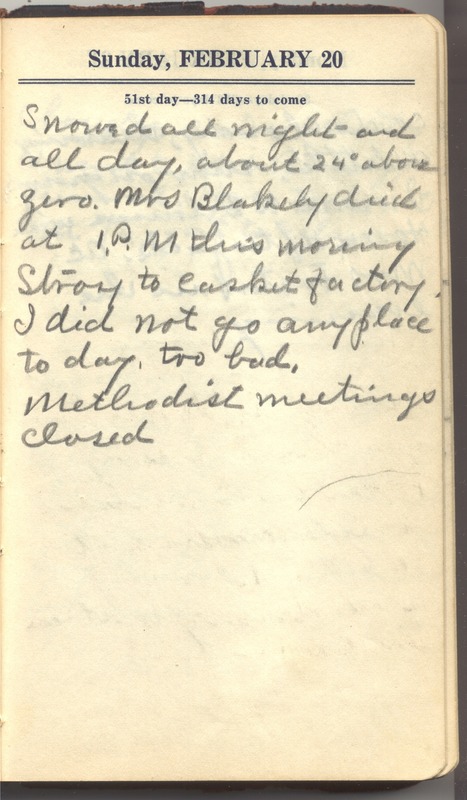 Sunday, FEBRUARY 20
51st day—314 days to come
Snowed all night and
all day, about 24° above
zero. Mrs Blakely died
at 1.P.M this morning
Stroy to Casket factory.
I did not go any place
to day. too bad.
Methodist meetings
Closed